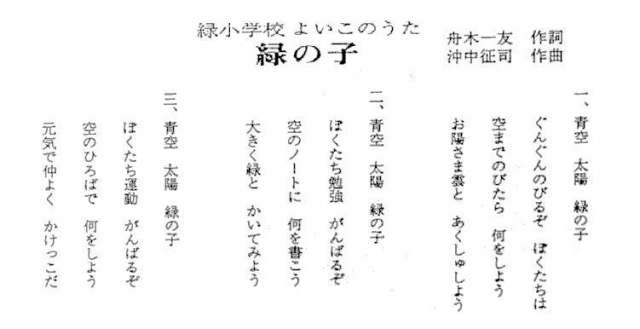 緑小学校 よいこのうた
緑の子
舟木一友 作詞
沖中征司 作曲
一、青空 太陽 緑の子
ぐんぐんのびるぞ ぼくたちは
空までのびたら 何をしよう
お陽さま雲と あくしゅしよう
二、青空 太陽 緑の子
ぼくたち勉強 がんばるぞ
空のノートに 何を書こう
大きく緑と かいてみよう
三、青空 太陽 緑の子
ぼくたち運動 がんばるぞ
空のひろばで 何をしよう
元気で仲よく かけっこだ